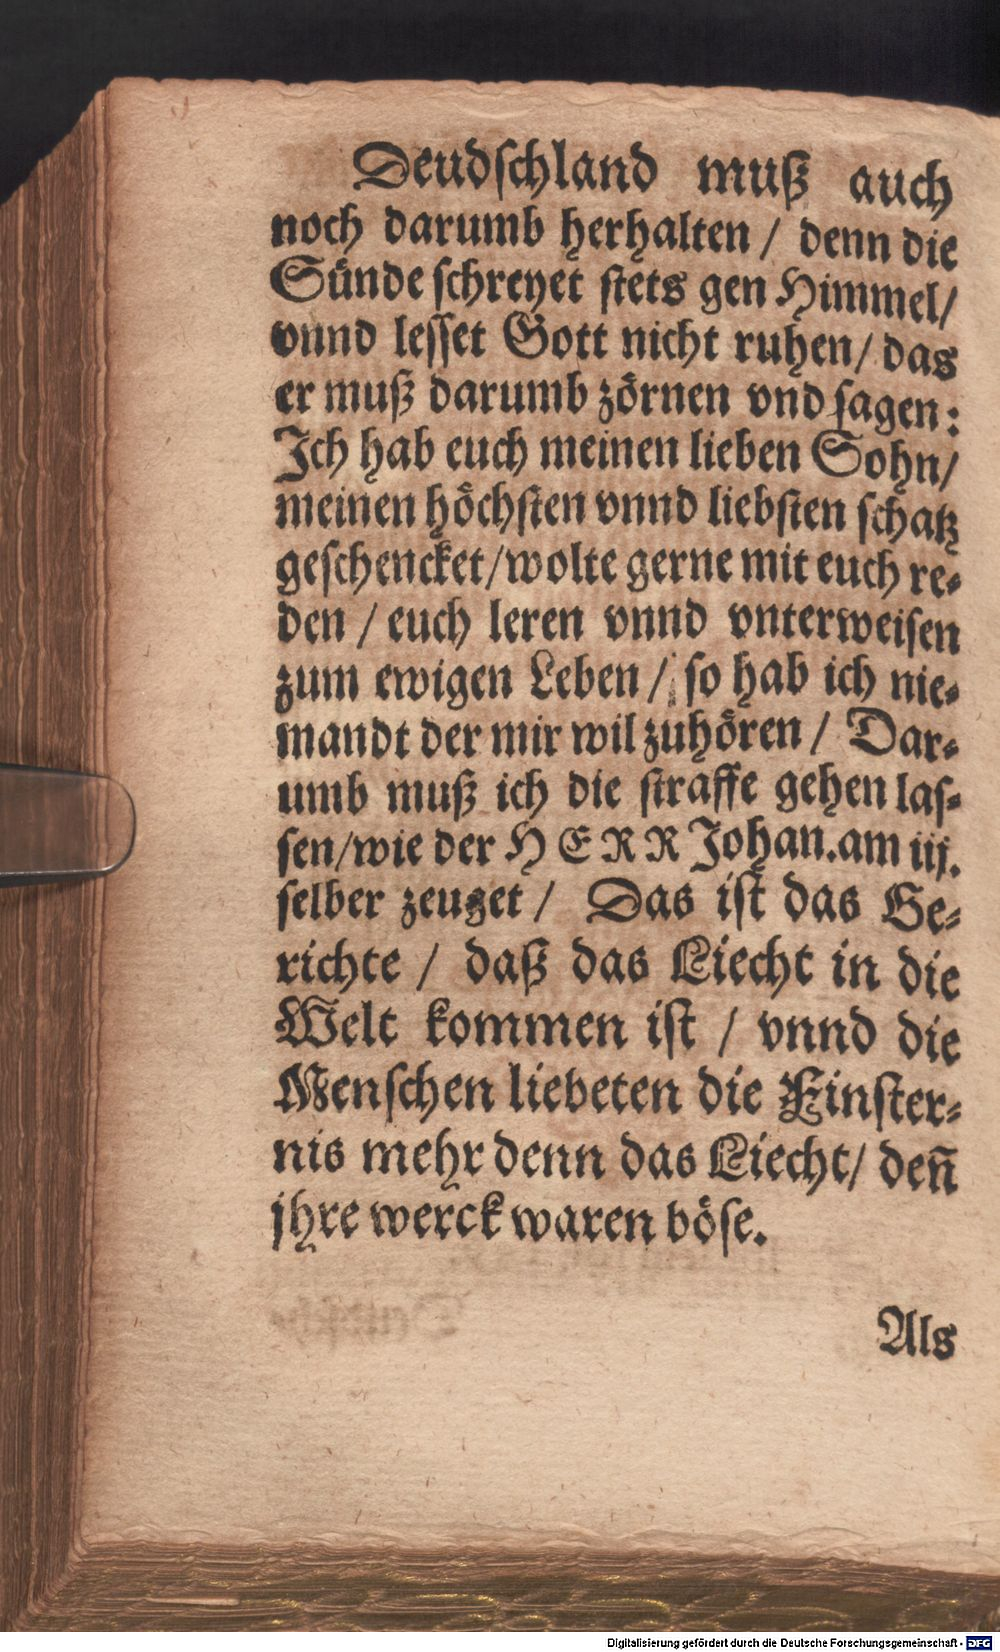 Deudſchland muß auch
noch darumb herhalten / denn die
Sünde ſchreyet ſtets gen Himmel/
vnnd leſſet Gott nicht ruhen/ das
er muß darumb zörnen vnd ſagen:
Ich hab euch meinen lieben Sohn/
meinen höchſten vnnd liebſten ſchatz
geſchencket/wolte gerne mit euch re-
den / euch leren vnnd vnterweiſen
zum ewigen Leben / ſo hab ich nie-
mandt der mir wil zuhören / Dar-
umb muß ich die ſtraffe gehen laſ-
ſen/wie der HERR Johan.am iij.
ſelber zeuget / Das iſt das Ge-
richte / daß das Liecht in die
Welt kommen iſt / vnnd die
Menſchen liebeten die Finſter-
nis mehr denn das Liecht/ deñ
jhre werck waren böſe.
Als
Digitalisierung gefördert durch die Deutsche Forschungsgemeinschaft - DFG